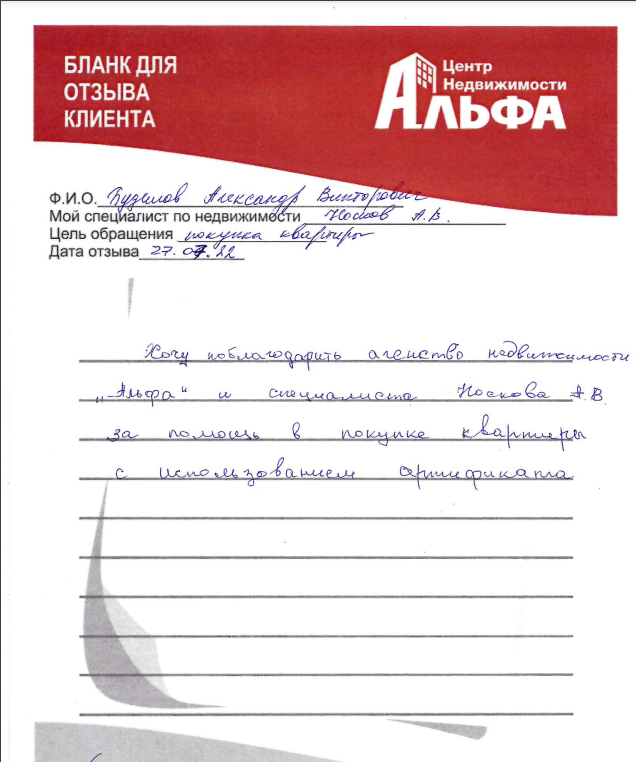 БЛАНК ДЛЯ
ОТЗЫВА
КЛИЕНТА
Центр
Недвижимости
АЛЬФА
Ф.И.О. Александр Викторович
Мой специалист по недвижимости Носков А.В.
Цель обращения покупка квартиры
Дата отзыва 27.07.22
Хочу поблагодарить агенство недвижимости
„Альфа“ и специалиста Носкова А.В.
за помощь в покупке квартиры
с использованием сртификата